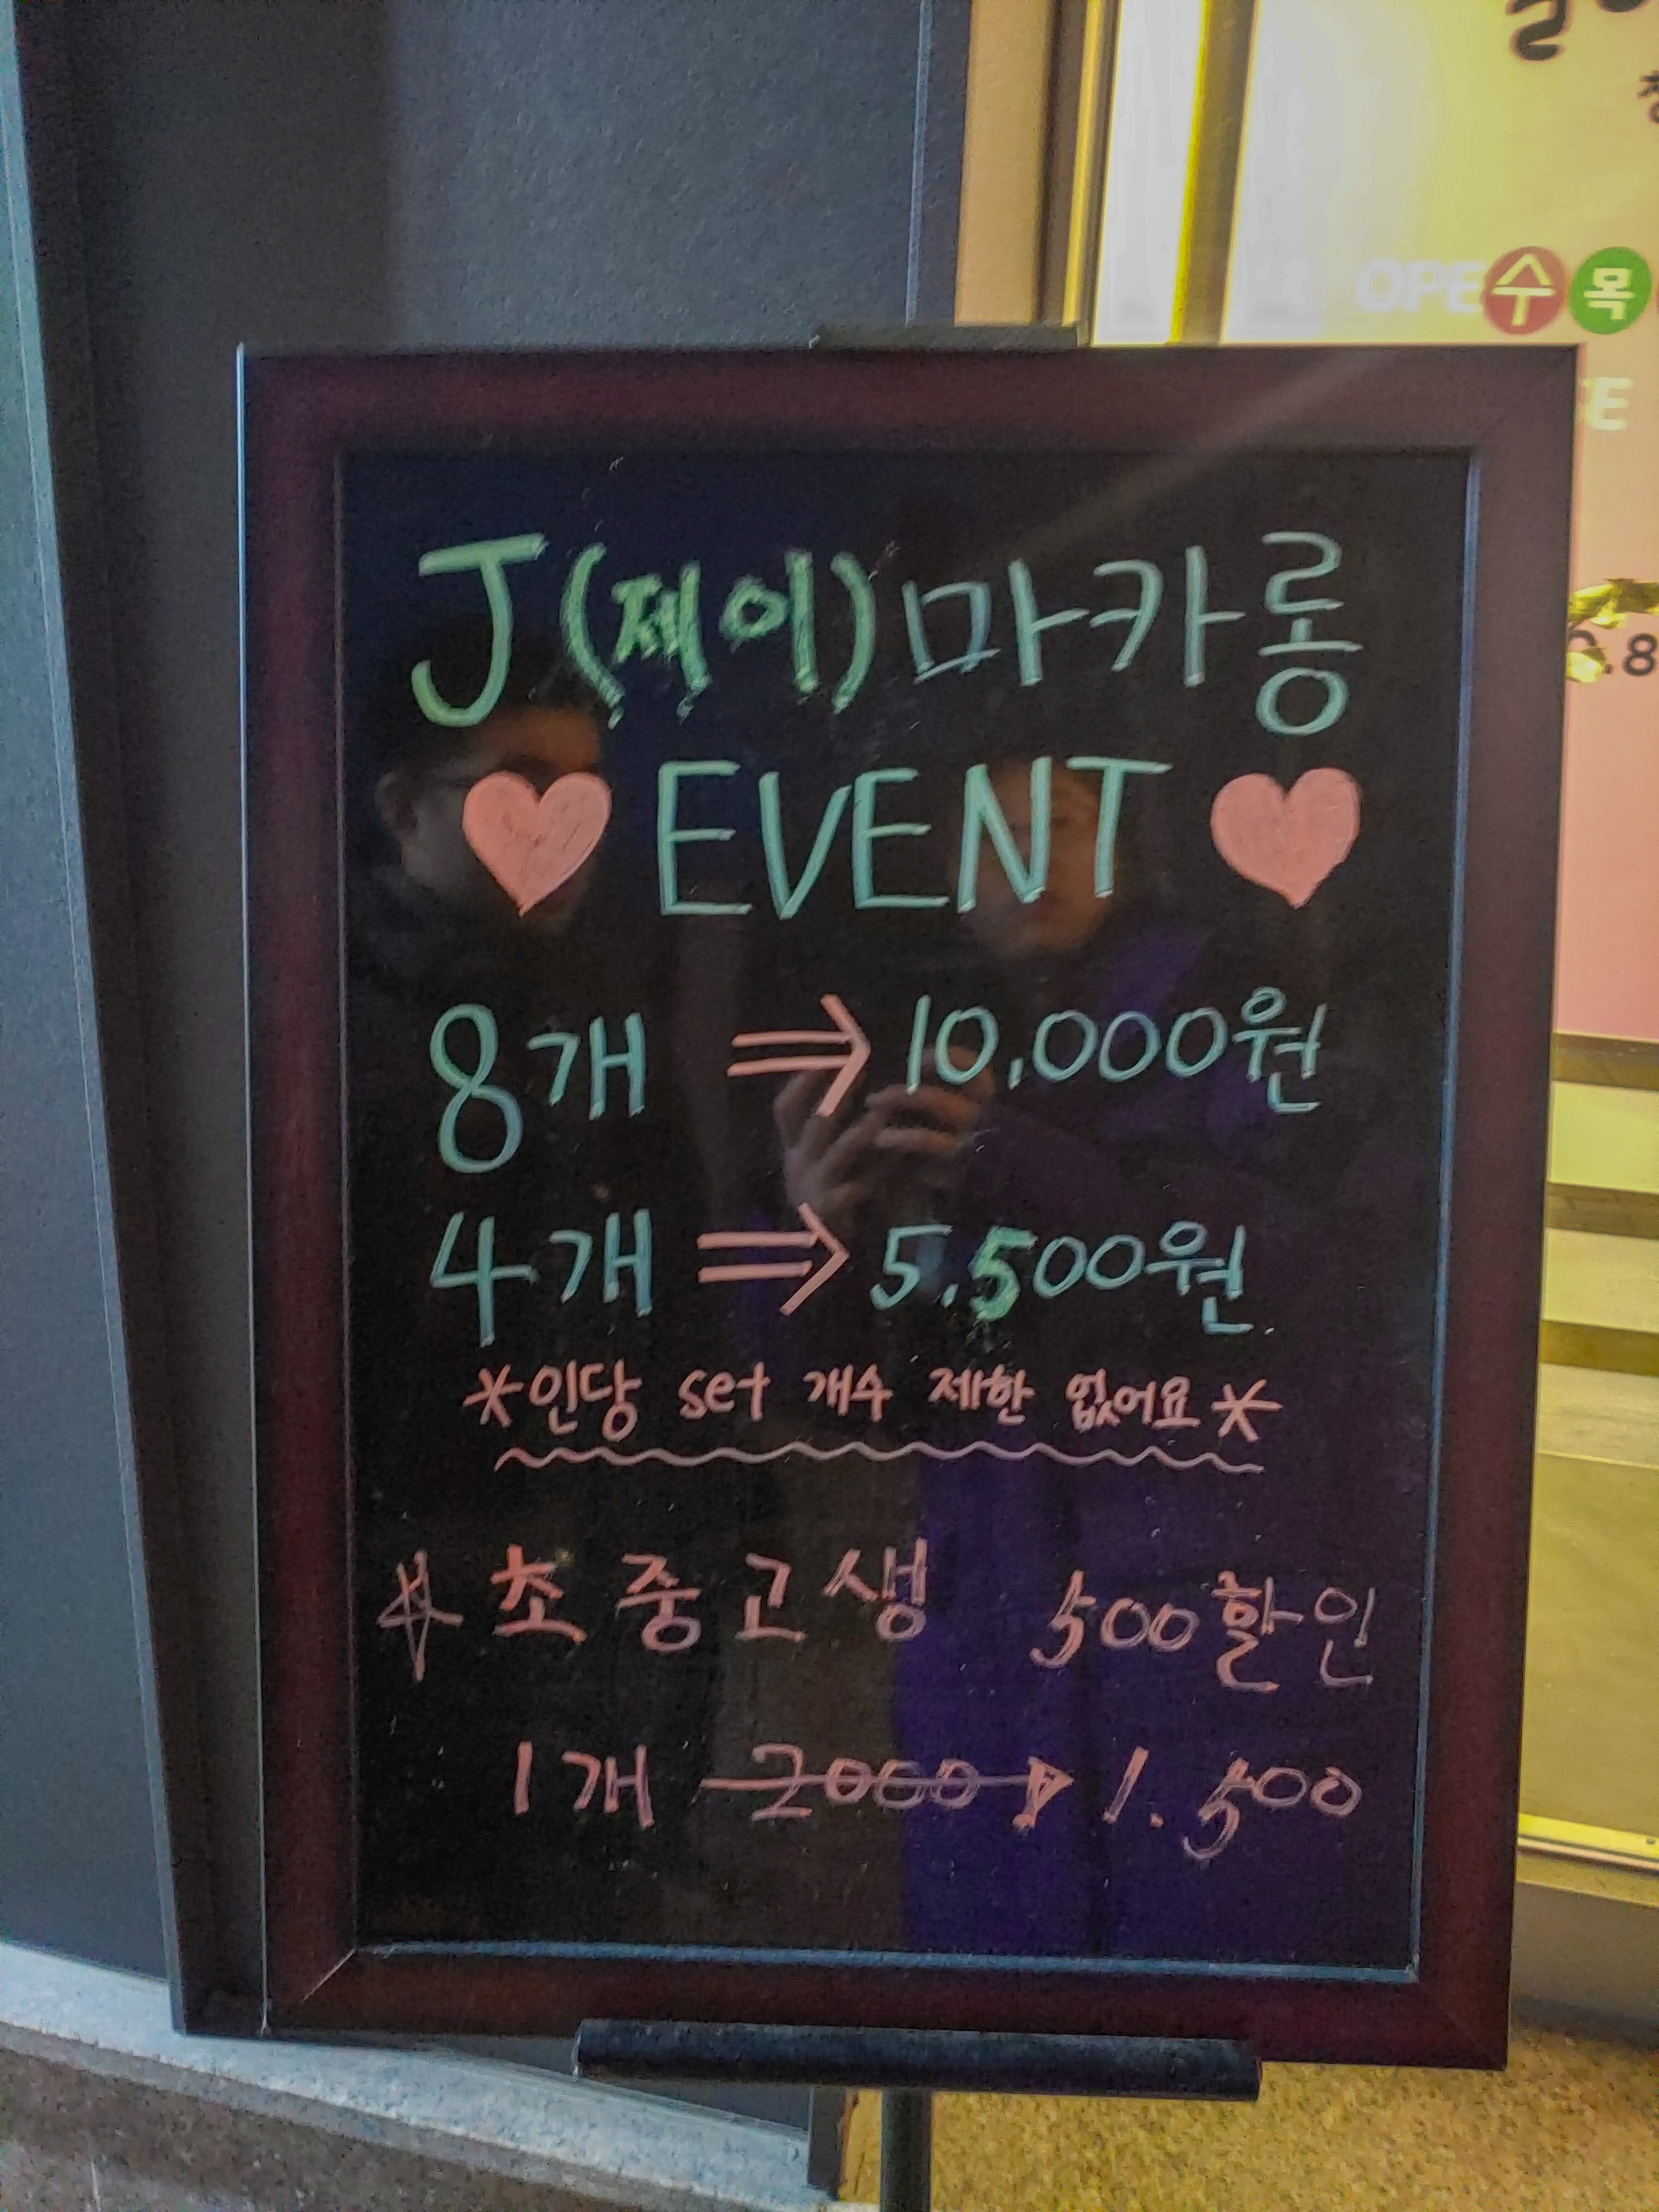 OPE 수 목
J (제이) 마카롱
♥ EVENT ♥
8개 ⇒ 10,000원
4개 ⇒ 5,500원
*인당 set 개수 제한 없어요*
☆ 초중고생 500할인
1개 2000 → 1.500